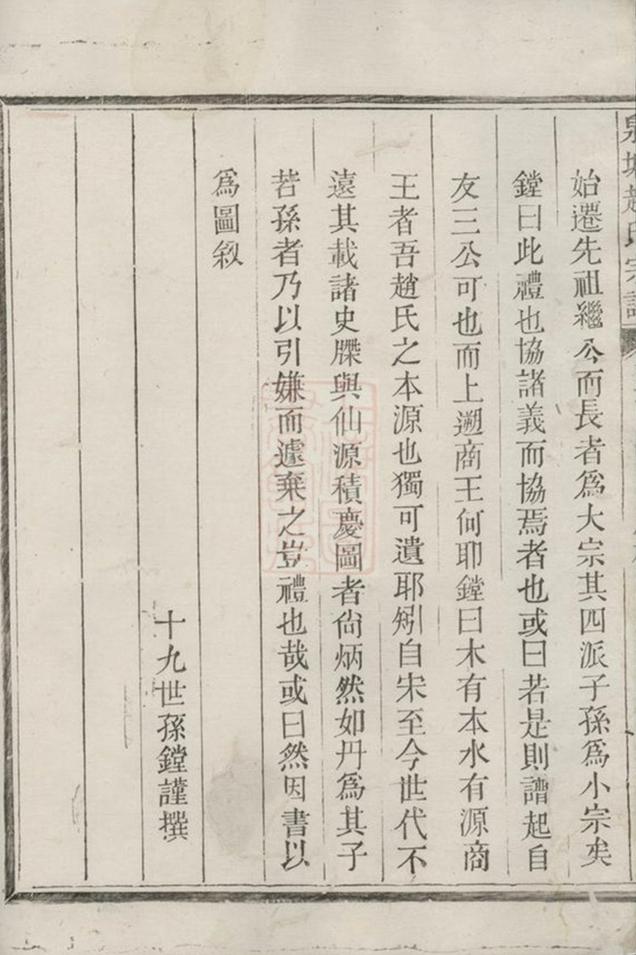 趙氏宗譜
始遷先祖繼公而長者爲大宗其四派子孫爲小宗矣
鏜曰此禮也協諸義而協焉者也或曰若是則譜起自
友三公可也而上遡商王何耶鏜曰木有本水有源商
王者吾趙氏之本源也獨可遺耶矧自宋至今世代不
遠其載諸史牒與仙源積慶圖者尙炳然如丹爲其子
若孫者乃以引嫌而遽棄之豈禮也哉或曰然因書以
爲圖敘
十九世孫鏜謹撰